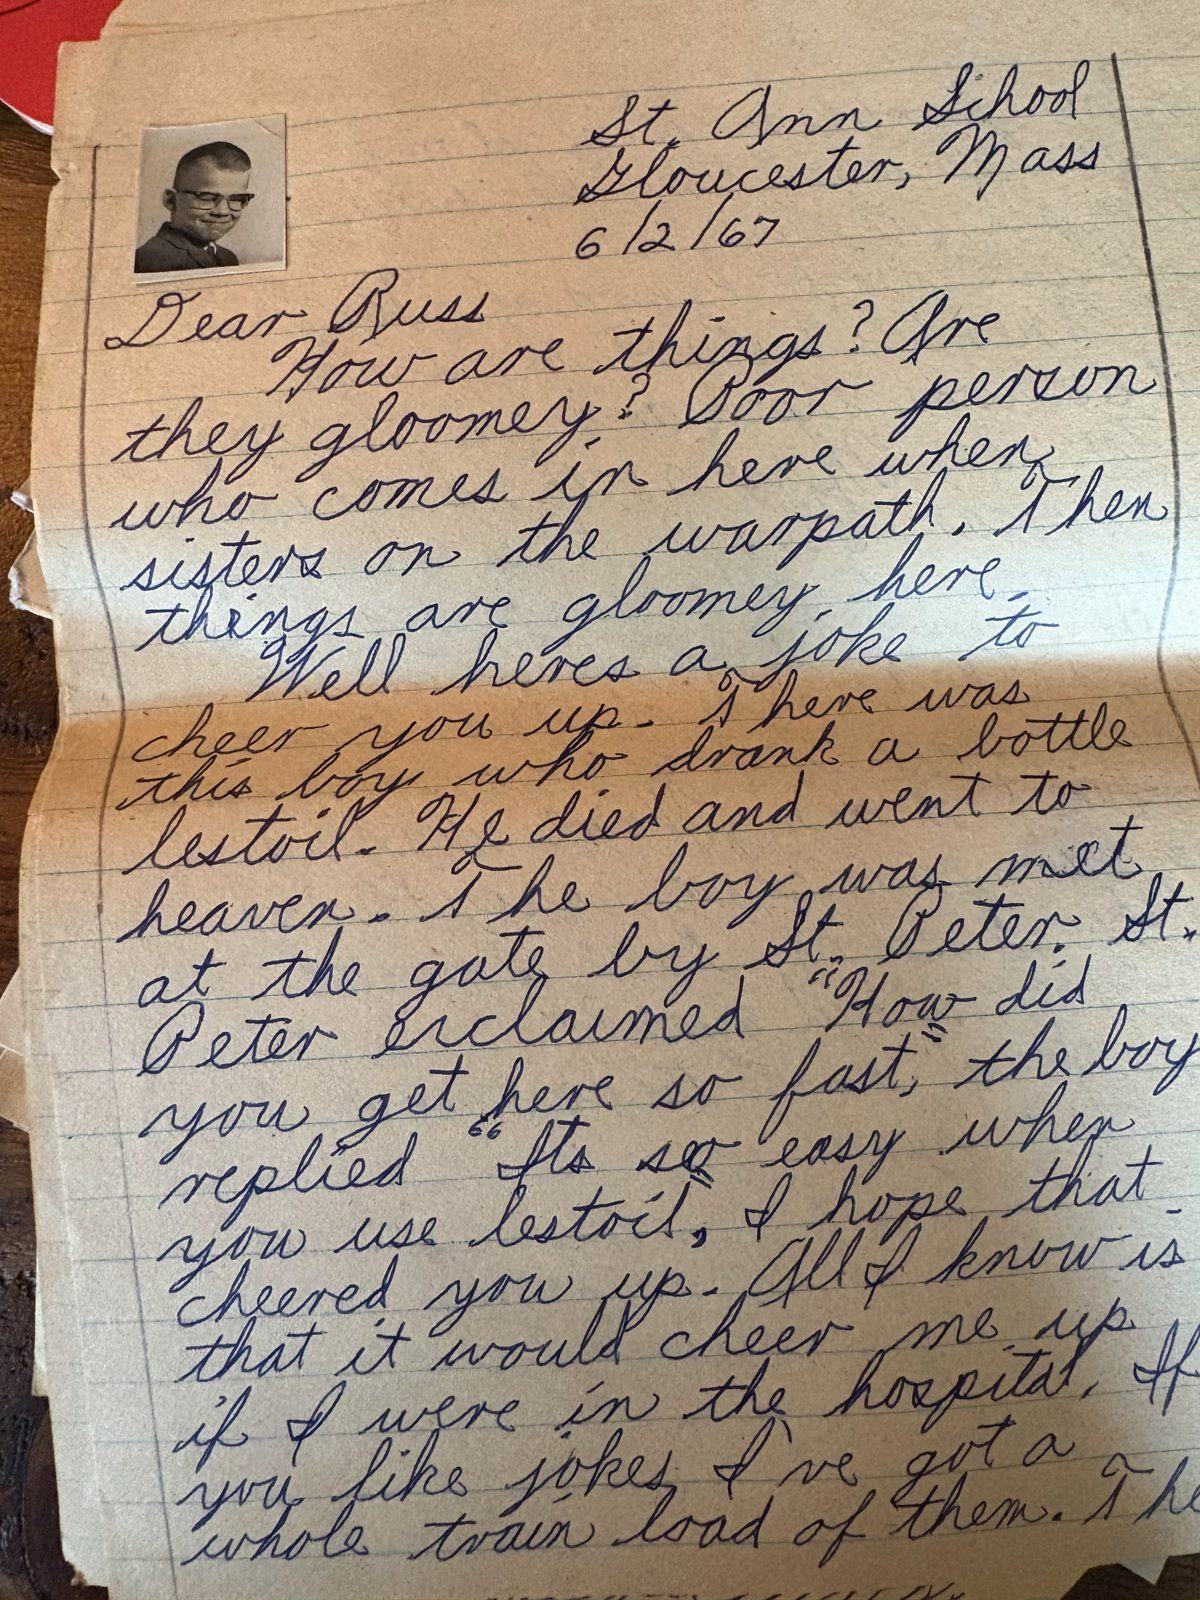 St. Ann School
Gloucester, Mass
6/2/67
Dear Russ
How are things? Are
they gloomey? Poor person
who comes in here when
sisters on the warpath. Then
things are gloomey here.
Well heres a joke to
cheer you up. There was
this boy who drank a bottle
lestoil. He died and went to
heaven. The boy was met
at the gate by St. Peter. St.
Peter exclaimed "How did
you get here so fast," the boy
replied "Its so easy when
you use lestoil", I hope that
cheered you up. All I know is
that it would cheer me up
if I were in the hospital. If
you like jokes I've got a
whole train load of them. The